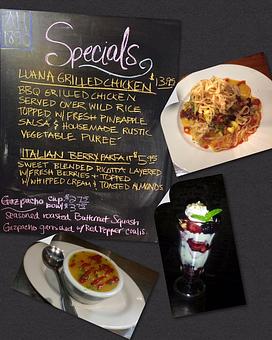 Specials
LUANA GRILLED CHICKEN $13.95
BBQ GRILLED CHICKEN
SERVED OVER WILD RICE
TOPPED W/FRESH PINEAPPLE
SALSA & HOUSEMADE RUSTIC
VEGETABLE PUREE
ITALIAN BERRY PARFAIT $5.95
SWEET BLENDED RICOTTA LAYERED
W/FRESH BERRIES & TOPPED
W/WHIPPED CREAM & TOASTED ALMONDS
Gazpacho cup
bowl
Seasoned roasted Butternut Squash
Gazpacho garnished w/Red Pepper coulis.